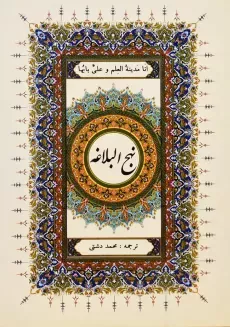 انا مدینة العلم و علیٌ بابُها
نهج البلاغه
ترجمه : محمد دشتی